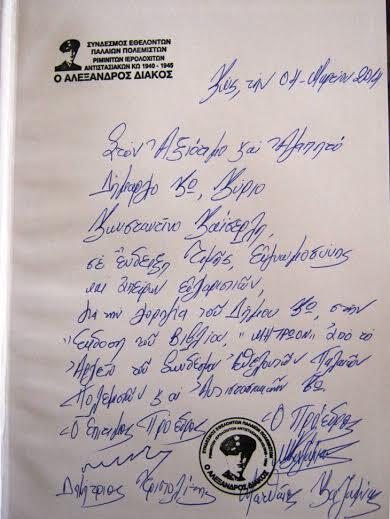 ΣΥΝΔΕΣΜΟΣ ΕΘΕΛΟΝΤΩΝ
ΠΑΛΑΙΩΝ ΠΟΛΕΜΙΣΤΩΝ
ΡΙΜΙΝΙΤΩΝ ΙΕΡΟΛΟΧΙΤΩΝ
ΑΝΤΙΣΤΑΣΙΑΚΩΝ ΚΩ 1940 - 1945
Ο ΑΛΕΞΑΝΔΡΟΣ ΔΙΑΚΟΣ
Κώς, την 04 Μαρτίου 2014
Στόν Ἀξιότιμο καί Ἀγαπητό
Δήμαρχο Κῶ, Κύριο
Κωνσταντίνο Καΐσερλη,
σέ ἔνδειξη Τιμῆς, Εὐγνωμοσύνης
και ἀπείρων εὐχαριστιῶν,
για την χορηγία τοῦ Δήμου Κῶ, στην
Ἔκδοση τοῦ Βιβλίου, "ΜΗΤΡΩΟΝ" ἀπό τό
Ἀρχείο τοῦ Συνδέσμου Ἐθελοντῶν Παλαιῶν
Πολεμιστῶν καί Ἀντιστασιακῶν Κῶ
Ὁ Ἐπίτιμος Πρόεδρος Ὁ Πρόεδρος
ΣΥΝΔΕΣΜΟΣ ΕΘΕΛΟΝΤΩΝ ΠΑΛΑΙΩΝ ΠΟΛΕΜΙΣΤΩΝ
Ο ΑΛΕΞΑΝΔΡΟΣ ΔΙΑΚΟΣ
Δημήτριος